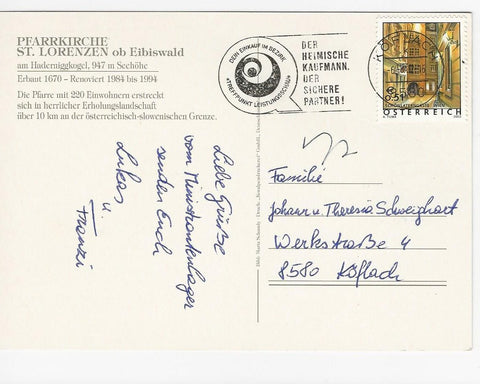 PFARRKIRCHE
ST. LORENZEN ob Eibiswald
am Haderniggkogel, 947 m Seehöhe
Erbaut 1670 - Renoviert 1984 bis 1994
Die Pfarre mit 220 Einwohnern erstreckt
sich in herrlicher Erholungslandschaft
über 10 km an der österreichisch-slowenischen Grenze.
DEIN EINKAUF IM BEZIRK
•TREFFPUNKT LEISTUNGSSCHAU•
DER
HEIMISCHE
KAUFMANN.
DER
SICHERE
PARTNER!
ÖSTERREICH
Liebe Grüße
vom Ministrantenlager
senden Euch
Lukas
u.
Franzi
Familie
Johann u. Theresia Schweighart
Werkstraße 4
8580 Köflach